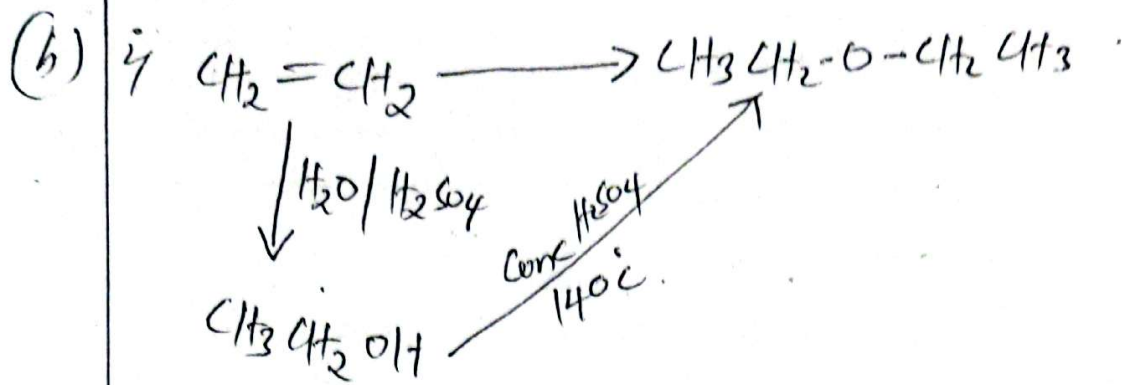 (b) i) CH2 = CH2 ⟶ CH3CH2-O-CH2CH3
H2O/H2SO4
Conc H2SO4
140°C.
CH3CH2OH